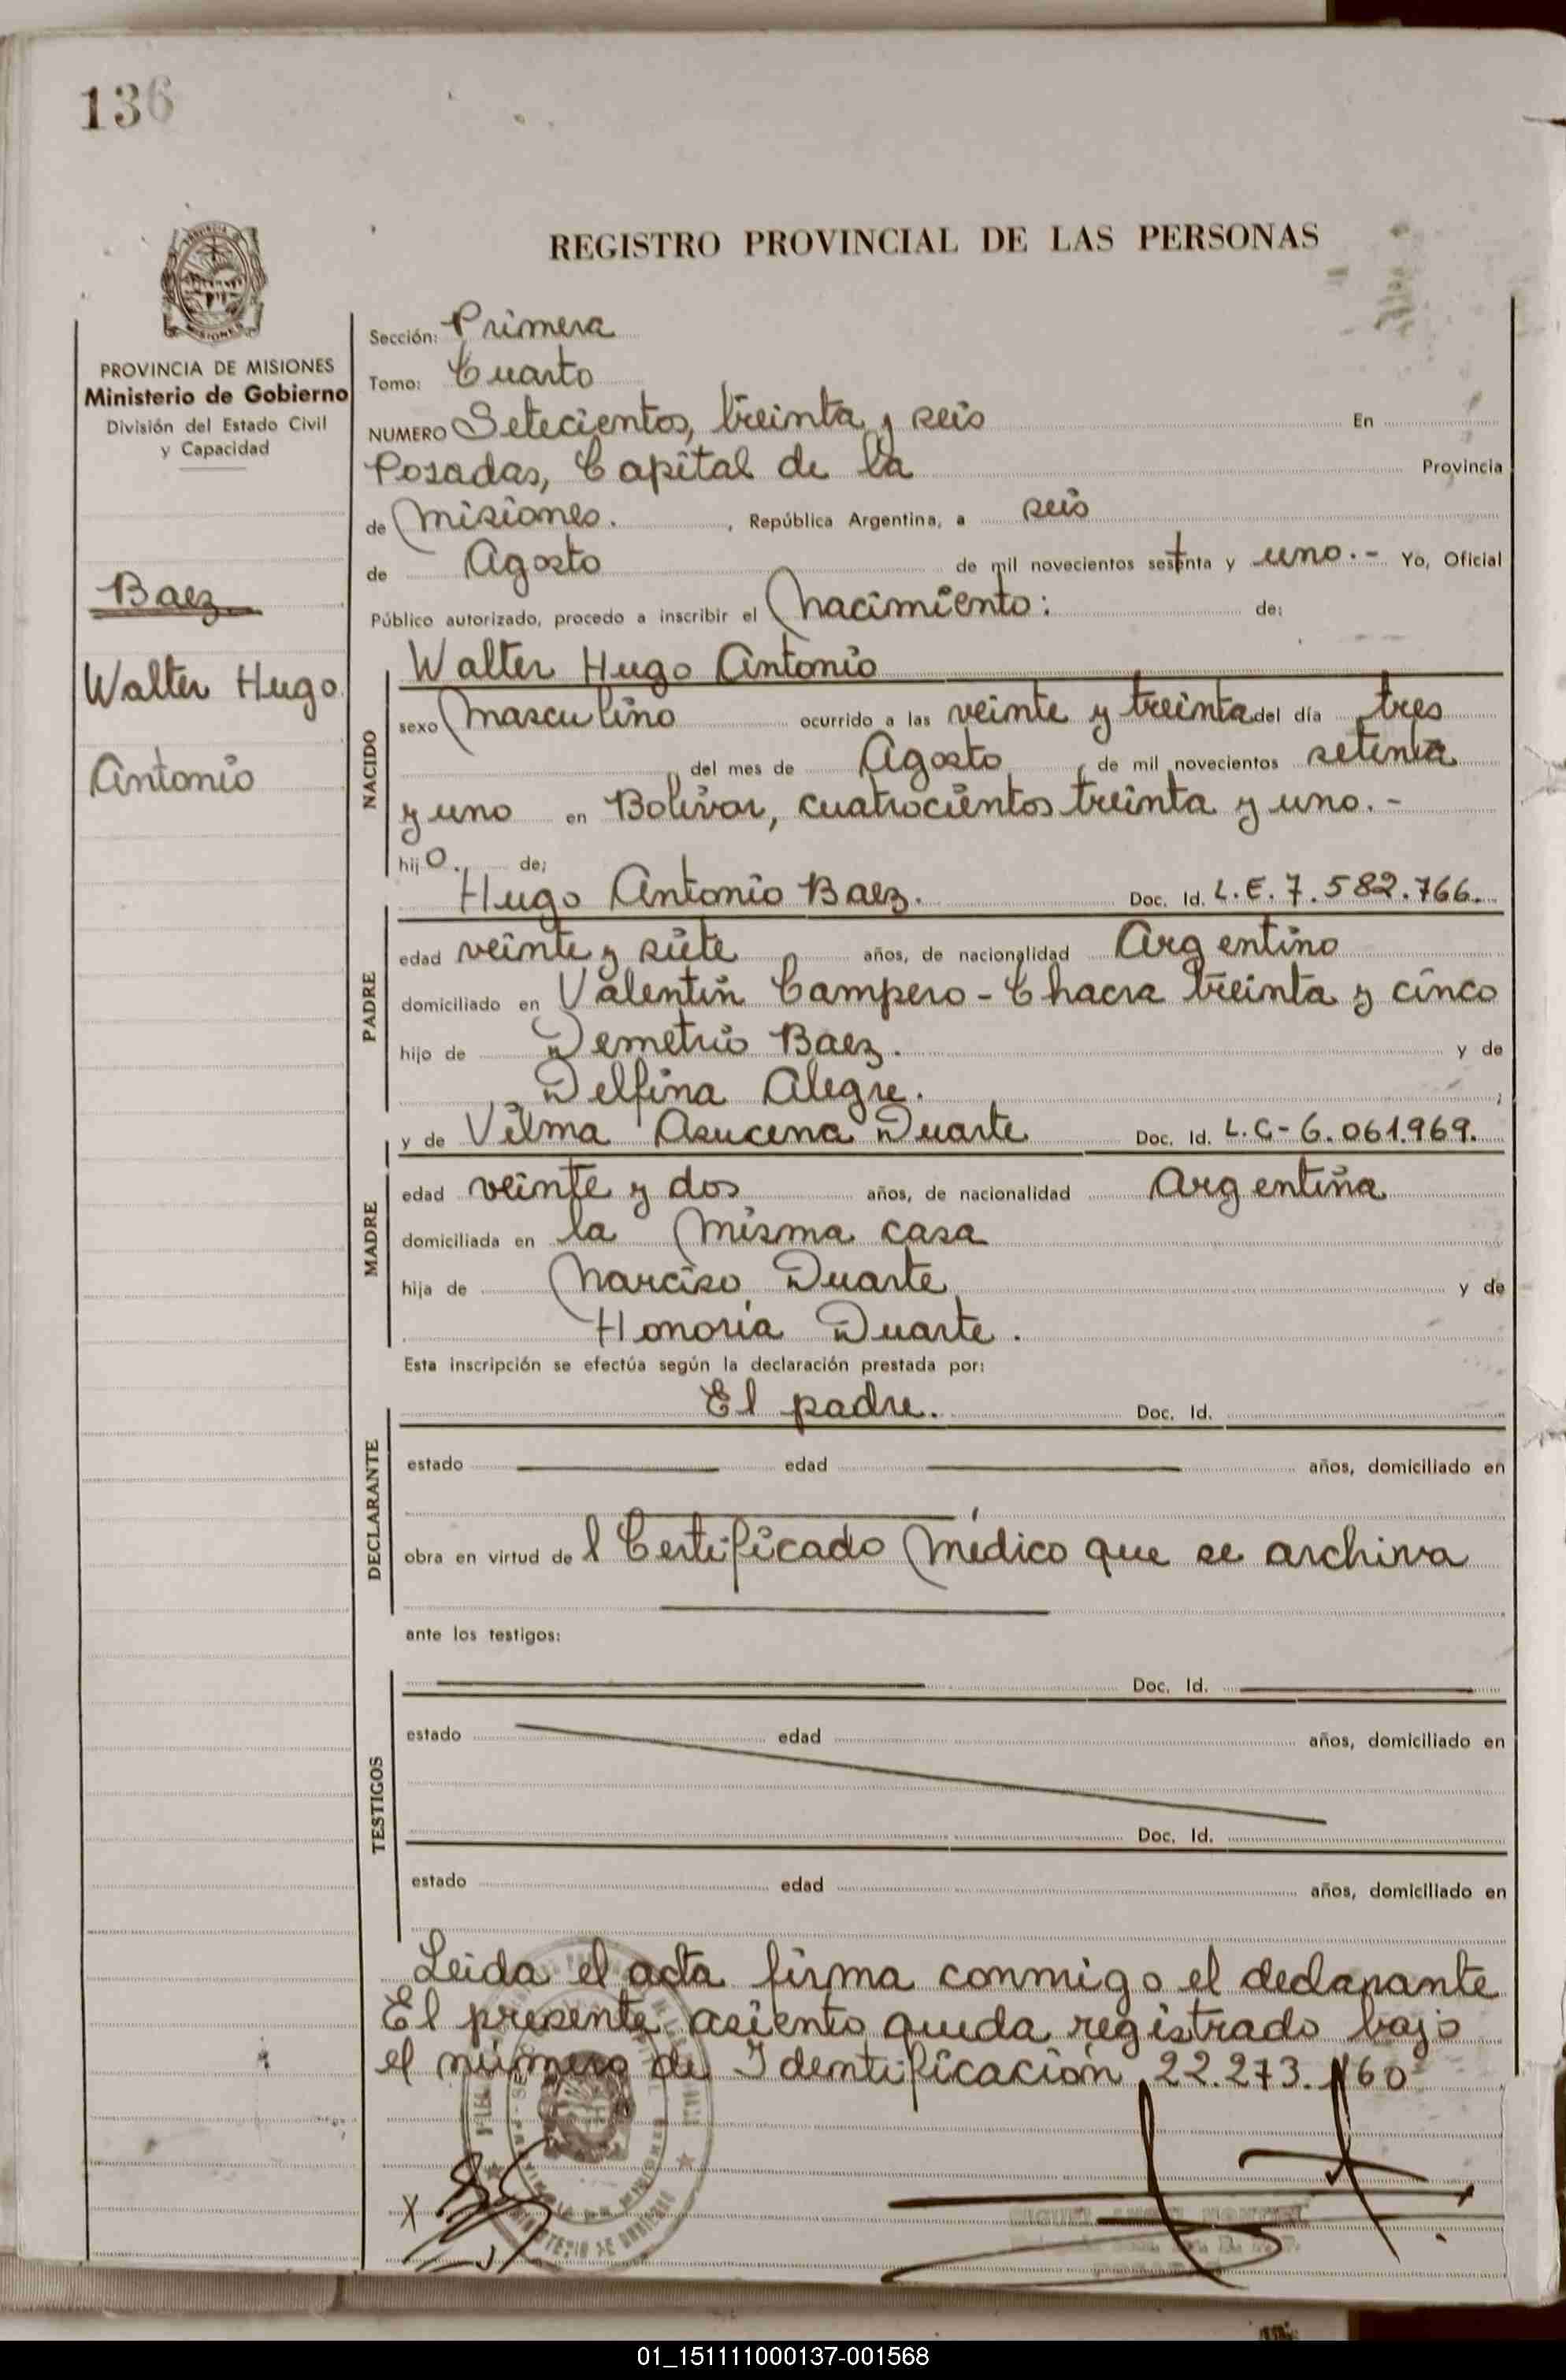 136
REGISTRO PROVINCIAL DE LAS PERSONAS
MISIONES
PROVINCIA DE MISIONES
Ministerio de Gobierno
División del Estado Civil
y Capacidad
Baez
Walter Hugo
Antonio
Sección: Primera
Tomo: Cuarto
NUMERO Setecientos, treinta y seis En
Posadas, Capital de la Provincia
de Misiones. , República Argentina, a seis
de Agosto de mil novecientos setenta y uno.- Yo, Oficial
Público autorizado, procedo a inscribir el Nacimiento: de:
NACIDO
Walter Hugo Antonio
sexo Masculino ocurrido a las veinte y treinta del día tres
del mes de Agosto, de mil novecientos setenta
y uno en Bolívar, cuatrocientos treinta y uno.-
hijo. de:
PADRE
Hugo Antonio Baez. Doc. Id. L.E. 7.582.766.
edad veinte y siete años, de nacionalidad Argentino
domiciliado en Valentín Campero - Chacra treinta y cinco
hijo de Demetrio Baez. y de
Delfina Alegre. ;
MADRE
y de Vilma Asucena Duarte Doc. Id. L.C - 6.061.969.
edad veinte y dos años, de nacionalidad Argentina
domiciliada en la misma casa
hija de Narciso Duarte y de
Honoria Duarte.
Esta inscripción se efectúa según la declaración prestada por:
DECLARANTE
El padre. Doc. Id.
estado edad años, domiciliado en
obra en virtud del Certificado Médico que se archiva
ante los testigos:
TESTIGOS
Doc. Id.
estado edad años, domiciliado en
Doc. Id.
estado edad años, domiciliado en
Leida el acta firma conmigo el declarante
El presente asiento queda registrado bajo
el número de Identificación 22.273.160
01_151111000137-001568